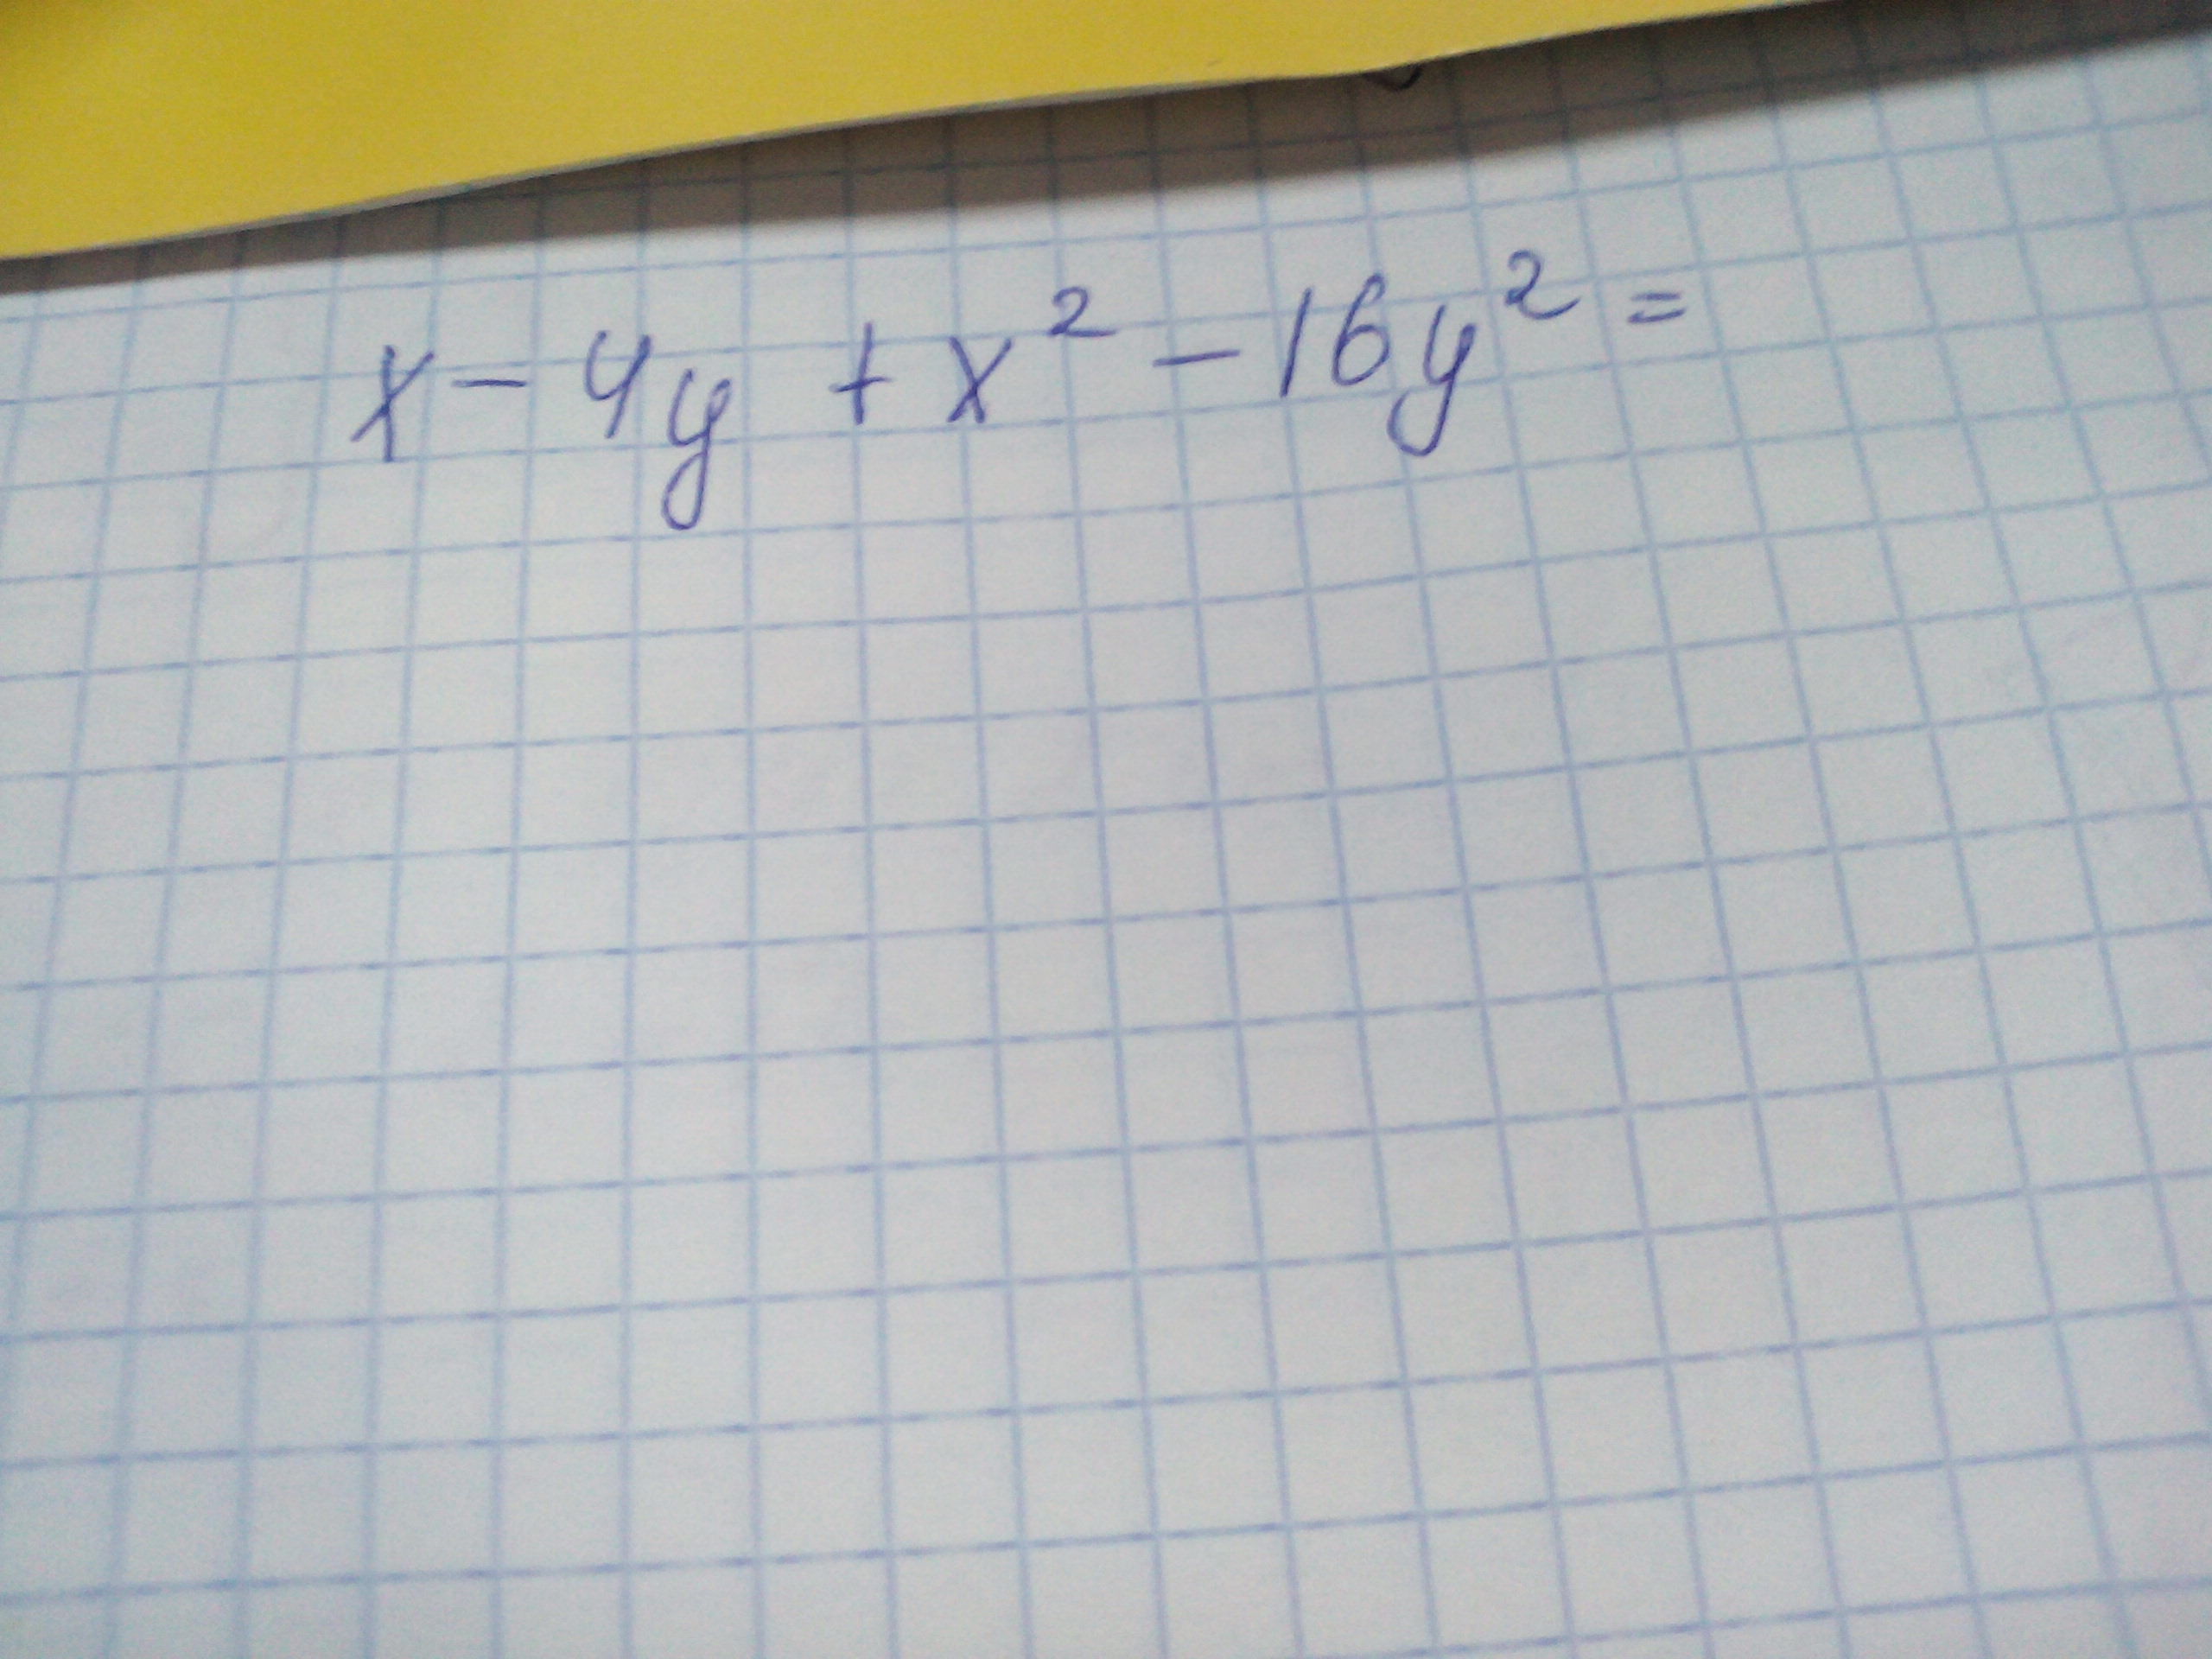 x - 4y + x² - 16y² =